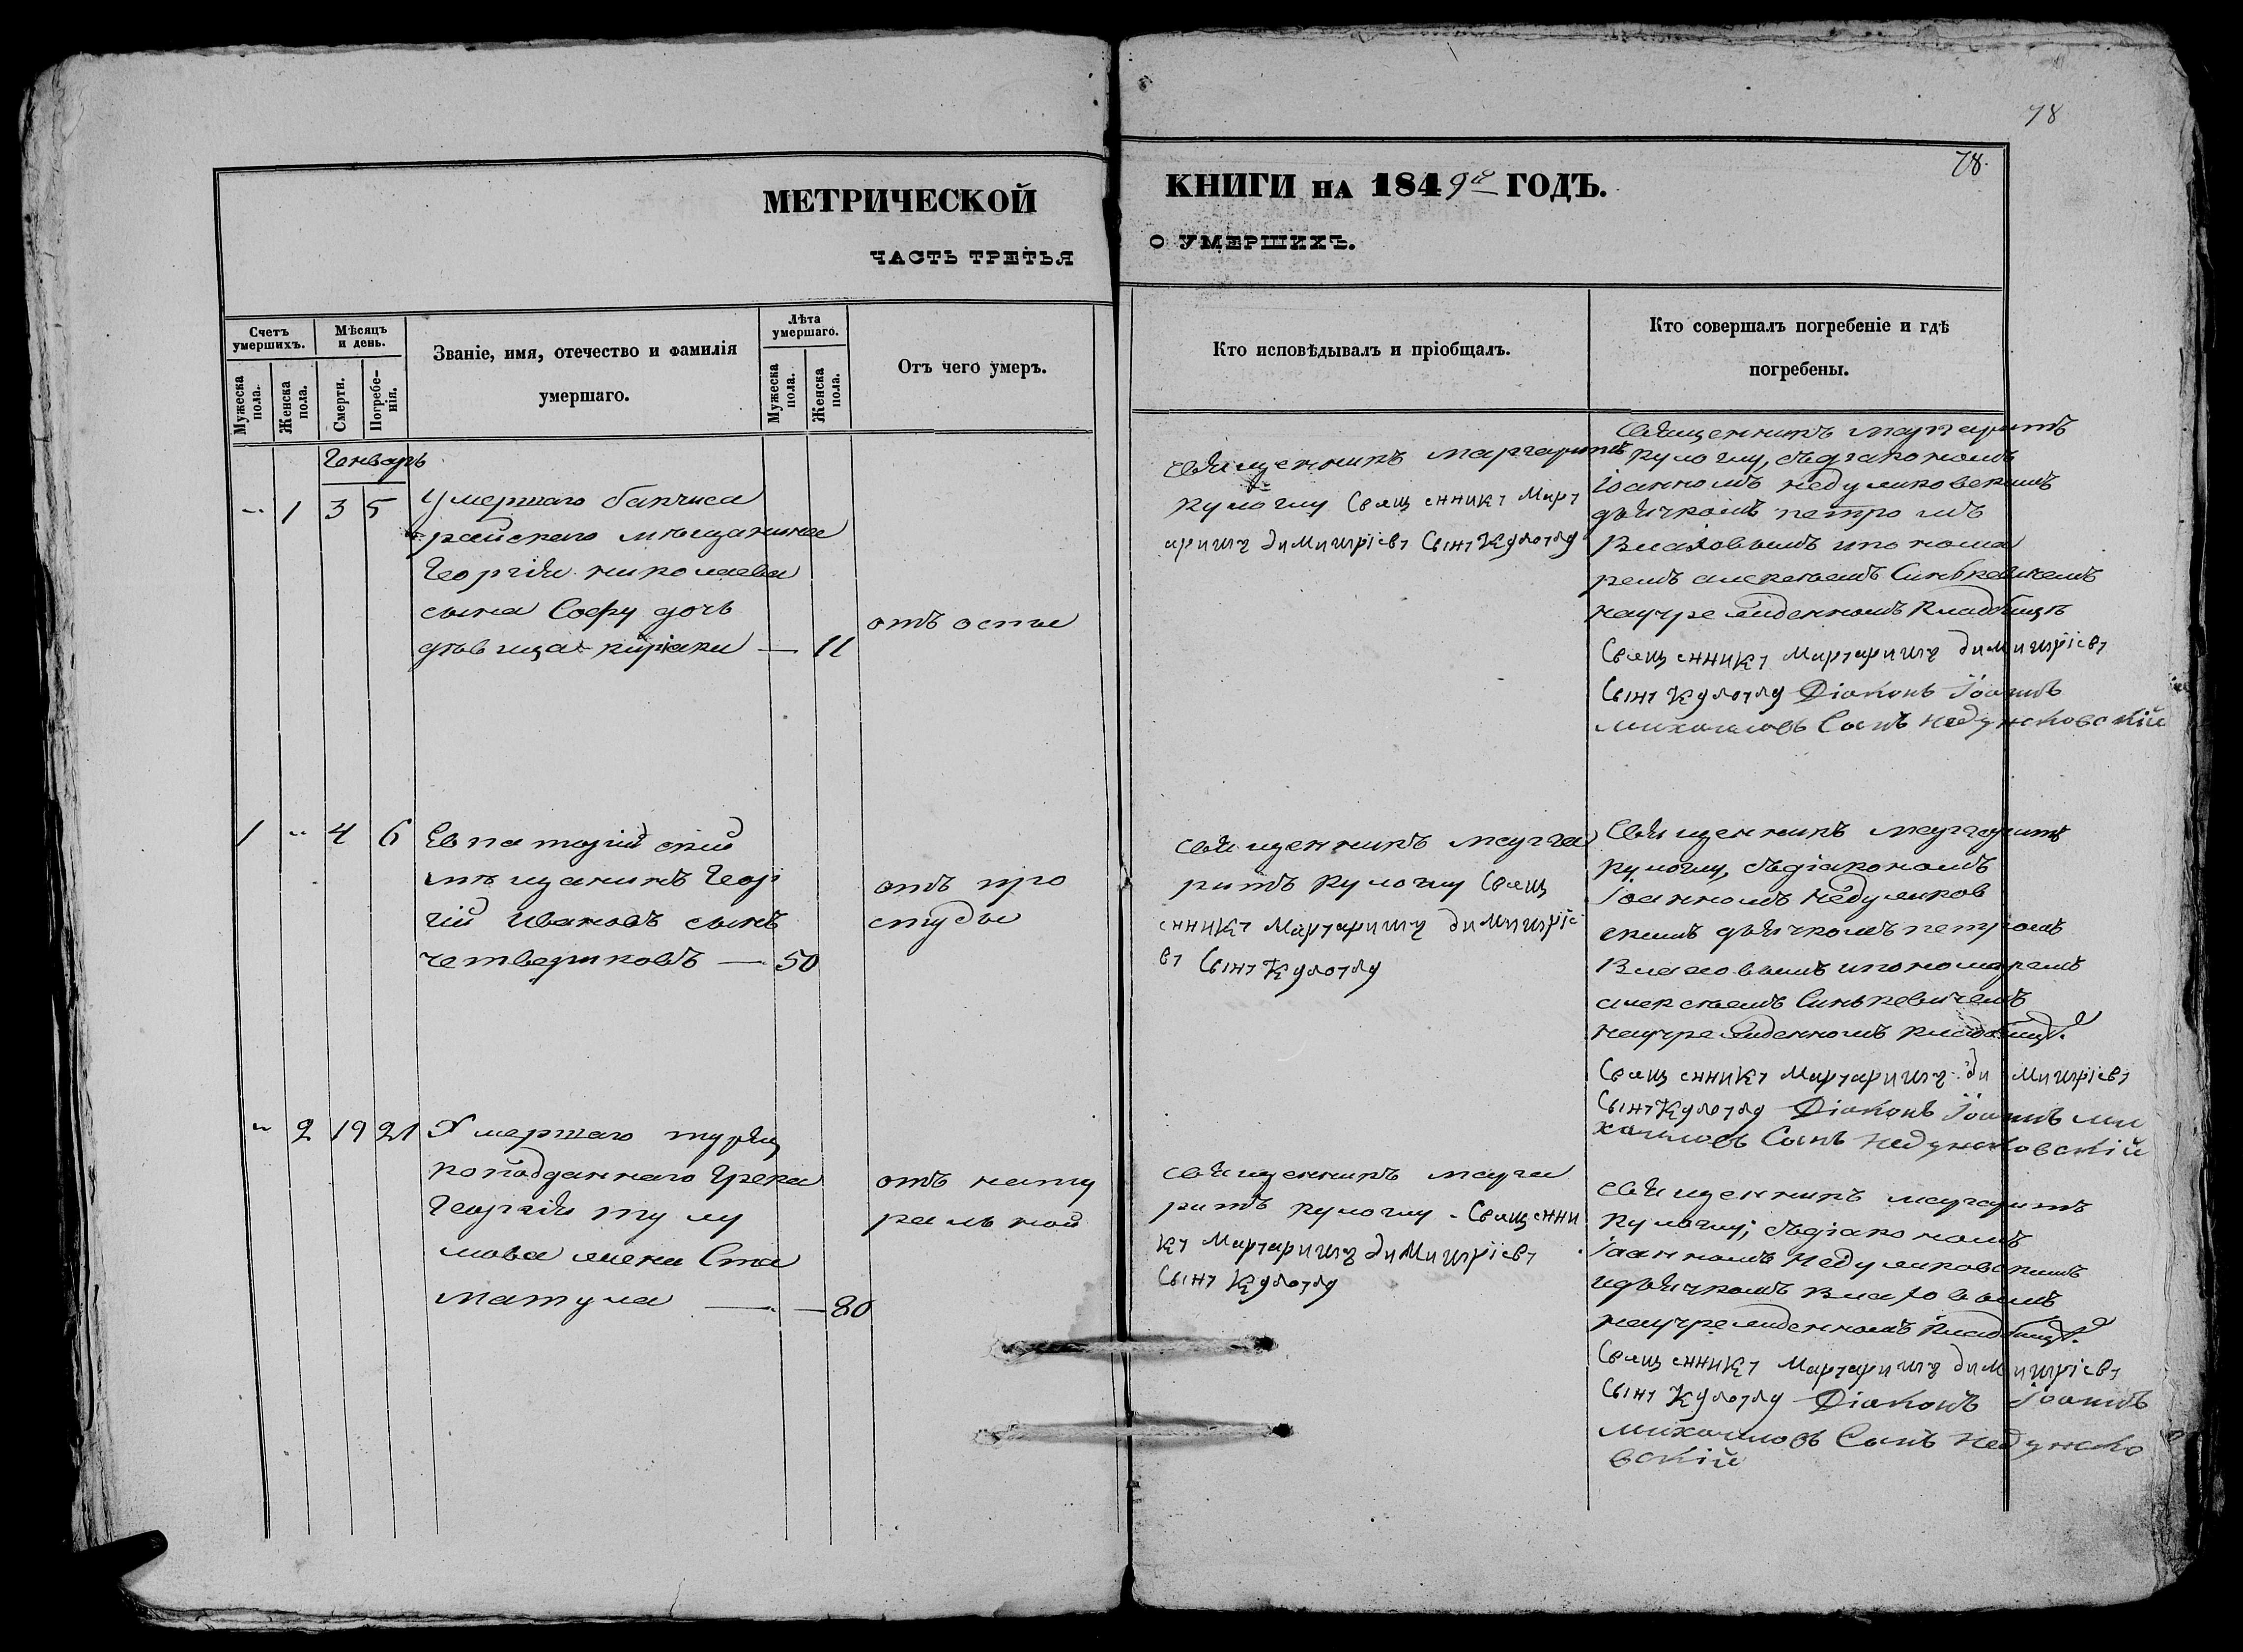 78
78.
МЕТРИЧЕСКОЙ
КНИГИ НА 1849й ГОДЪ.
ЧАСТЬ ТРЕТЬЯ
О УМЕРШИХЪ.
Счетъ умершихъ.
Мѣсяцъ и день.
Званіе, имя, отечество и фамилія
умершаго.
Лѣта умершаго.
Отъ чего умеръ.
Кто исповѣдывалъ и пріобщалъ.
Кто совершалъ погребеніе и гдѣ
погребены.
Мужеска пола.
Женска пола.
Смерти.
Погребенія.
Мужеска пола.
Женска пола.
Генварь
„ 1 3 5
Умершаго бахчиса
райскаго мѣщанина
Георгія николаева
сына Софу дочь
дѣвица киріаки — 11
отъ оспы
священникъ маргаритъ
кулоглу Священникъ Марг
аритъ Димитріевъ Сынъ Кулоглу
Священникъ маргаритъ
кулоглу, съдіакономъ
іоанномъ недумковскимъ
дьячкомъ петромъ
Влаховымъ ипонома
ремъ алексѣемъ Синькевичемъ
научрежденномъ кладбищѣ
Священникъ Маргаритъ Димитріевъ
Сынъ Кулоглу Діаконъ Іоаннъ
михаиловъ Сынъ Недумковскій
1 „ 4 6
Евпаторійскій
мѣщанинъ Геор
гій Ивановъ сынъ
четвериковъ — 50
отъ про
студы
священникъ марга
ритъ кулоглу Свящ
енникъ Маргаритъ Димитріе
въ Сынъ Кулоглу
Священникъ маргаритъ
кулоглу, съдіакономъ
Іоанномъ Недумков
скимъ дьячкомъ петромъ
Влаховымъ ипономаремъ
алексѣемъ Синькевичемъ
научрежденномъ кладбищѣ.
Священникъ Маргаритъ Димитріевъ
Сынъ Кулоглу Діаконъ Іоаннъ ми
хаиловъ Сынъ Недумковскій
„ 2 19 21
Умершаго турец
коподданнаго Грека
Георгія
жена Ста
матула — — 80
отъ нату
ральной
священникъ марга
ритъ кулоглу. Священни
къ Маргаритъ Димитріевъ
Сынъ Кулоглу
священникъ маргаритъ
кулоглу; съдіакономъ
Іоанномъ Недумковскимъ
идьячкомъ Влаховымъ
научрежденномъ кладбищѣ.
Священникъ Маргаритъ Димитріевъ
Сынъ Кулоглу Діаконъ Іоаннъ
михаиловъ Сынъ Недумко
вскій